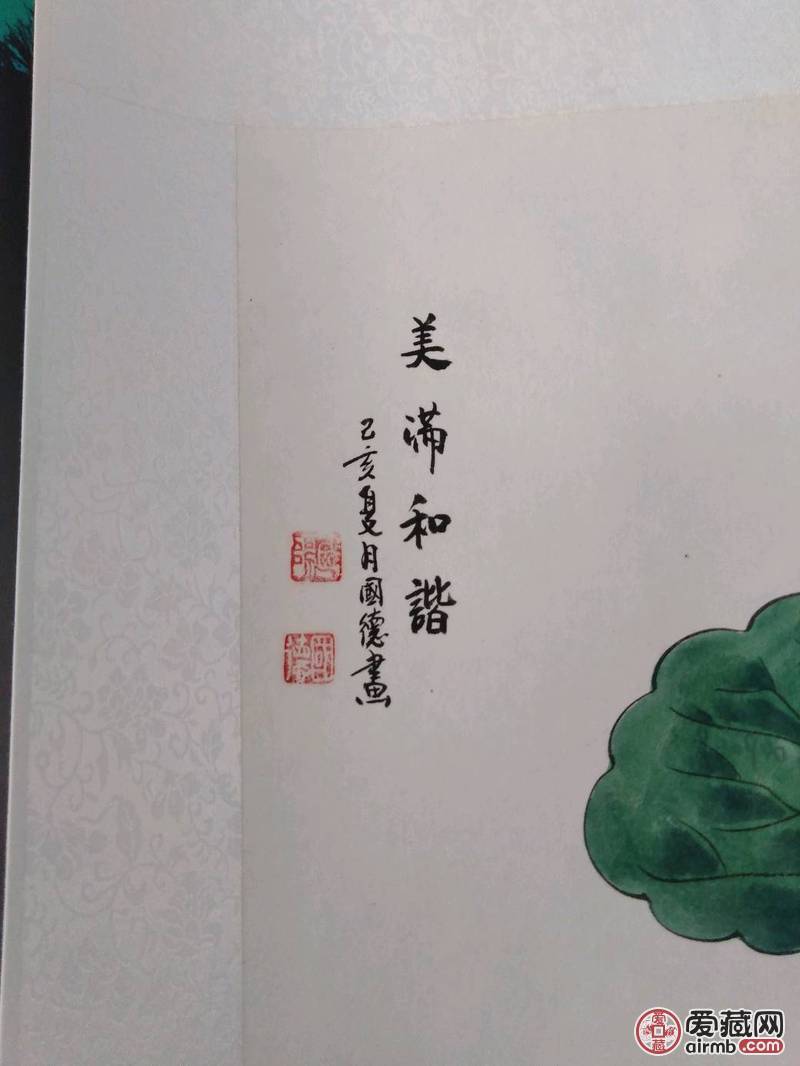 美满和谐
己亥夏月國德畫
爱藏网
airmb.com